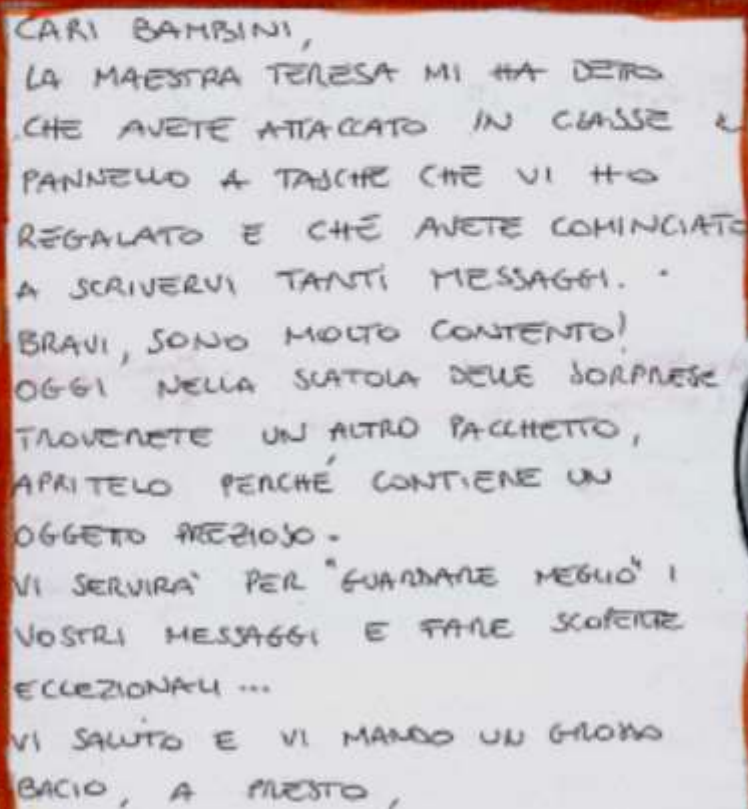 CARI BAMBINI,
LA MAESTRA TERESA MI HA DETTO
CHE AVETE ATTACCATO IN CLASSE
PANNELLO A TASCHE CHE VI HO
REGALATO E CHE AVETE COMINCIATO
A SCRIVERVI TANTI MESSAGGI.
BRAVI, SONO MOLTO CONTENTO!
OGGI NELLA SCATOLA DELLE SORPRESE
TROVERETE UN ALTRO PACCHETTO,
APRITELO PERCHÉ CONTIENE UN
OGGETTO PREZIOSO.
VI SERVIRA' PER "GUARDARE MEGLIO" I
VOSTRI MESSAGGI E FARE SCOPERTE
ECCEZIONALI ...
VI SALUTO E VI MANDO UN GROSSO
BACIO, A PRESTO,